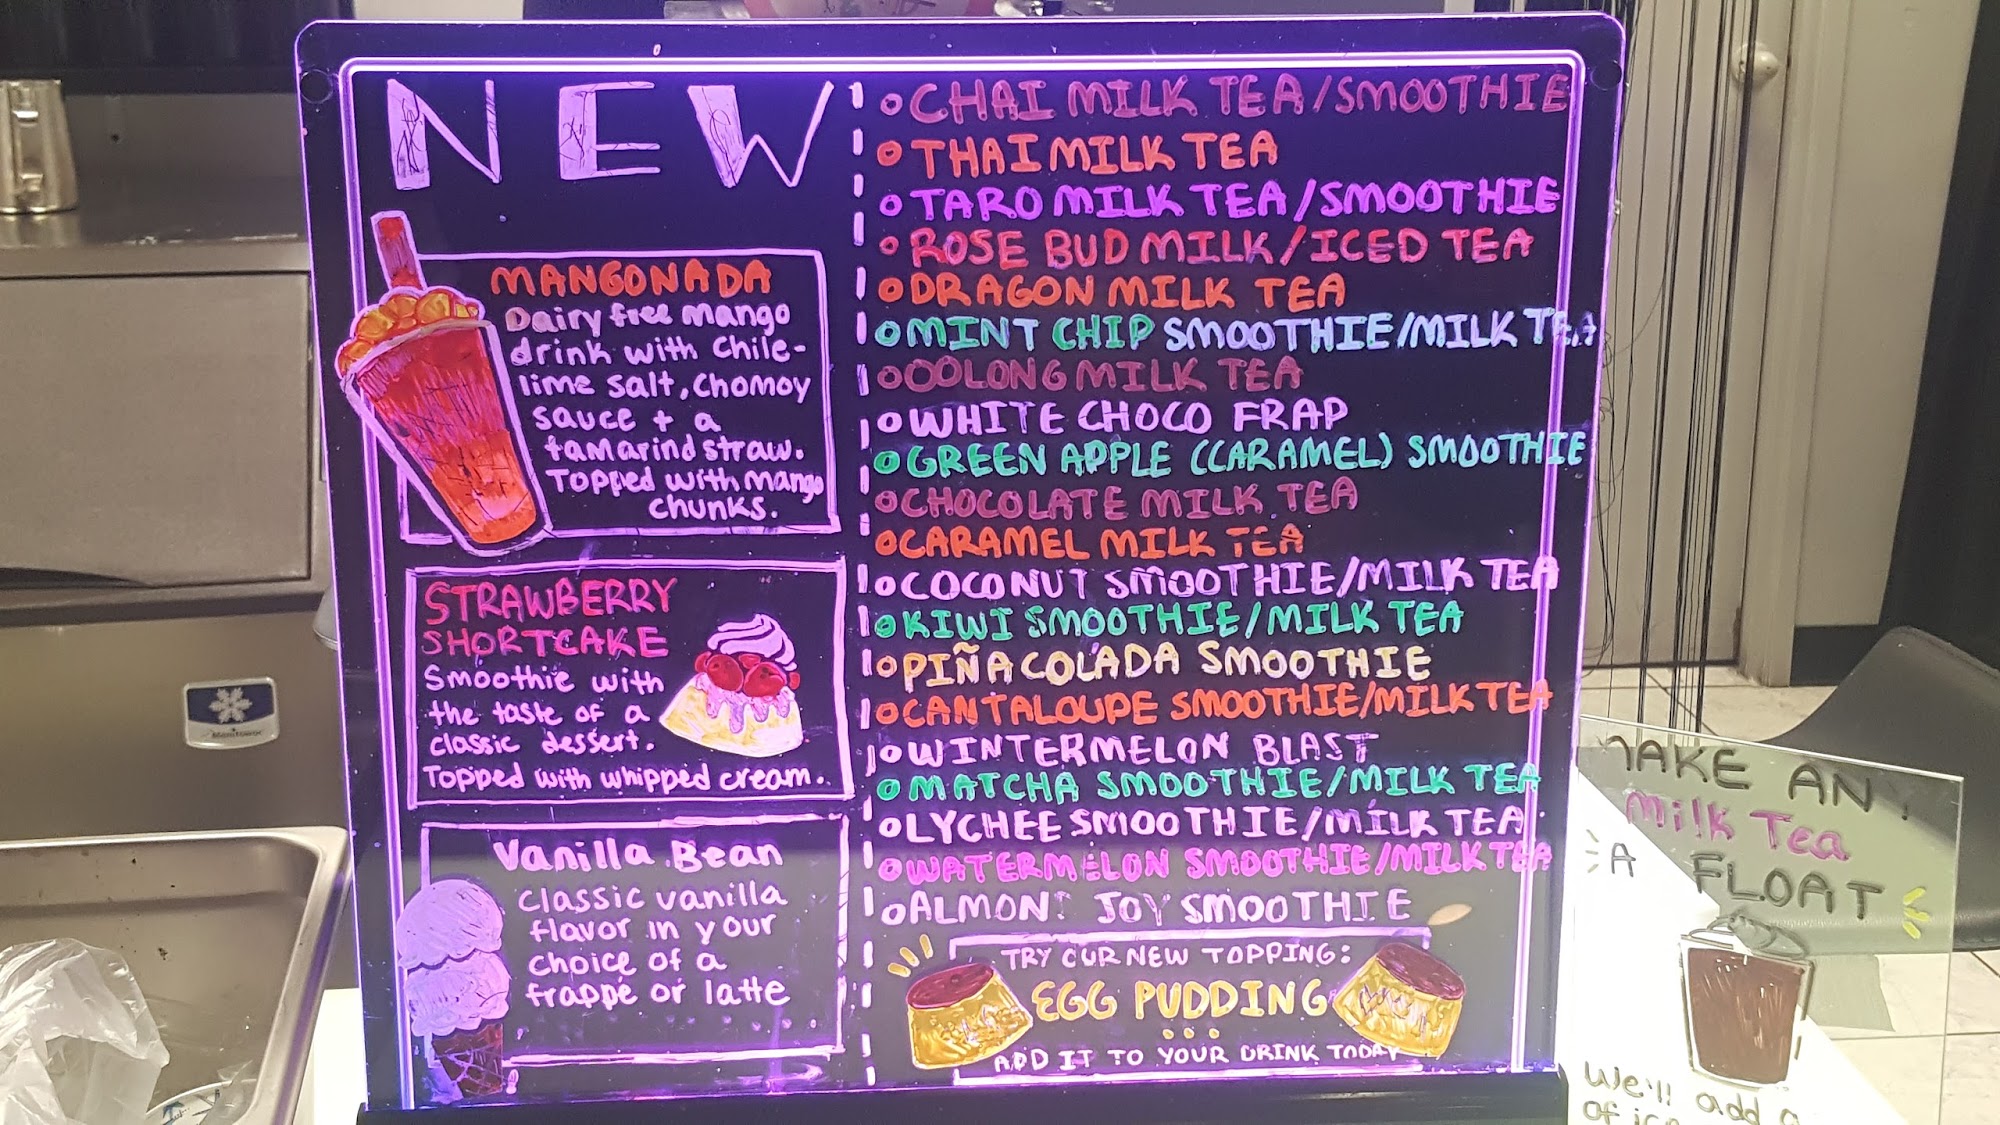 NEW
MANGONADA
Dairy free mango
drink with Chile-
lime salt, Chomoy
sauce + a
tamarind straw.
Topped with mango
chunks.
STRAWBERRY
SHORTCAKE
Smoothie with
the taste of a
classic dessert.
Topped with whipped cream.
Vanilla Bean
Classic vanilla
flavor in your
choice of a
frappe or latte
CHAI MILK TEA/SMOOTHIE
THAI MILK TEA
TARO MILK TEA/SMOOTHIE
ROSE BUD MILK/ICED TEA
DRAGON MILK TEA
MINT CHIP SMOOTHIE/MILK TEA
OOLONG MILK TEA
WHITE CHOCO FRAP
GREEN APPLE (CARAMEL) SMOOTHIE
CHOCOLATE MILK TEA
CARAMEL MILK TEA
COCONUT SMOOTHIE/MILK TEA
KIWI SMOOTHIE/MILK TEA
PIÑA COLADA SMOOTHIE
CANTALOUPE SMOOTHIE/MILK TEA
WINTERMELON BLAST
MATCHA SMOOTHIE/MILK TEA
LYCHEE SMOOTHIE/MILK TEA
WATERMELON SMOOTHIE/MILK TEA
ALMOND JOY SMOOTHIE
TRY OUR NEW TOPPING:
EGG PUDDING
...
ADD IT TO YOUR DRINK TODAY
MAKE ANY
Milk Tea
A FLOAT
We'll add a
of ice
Manitowoc